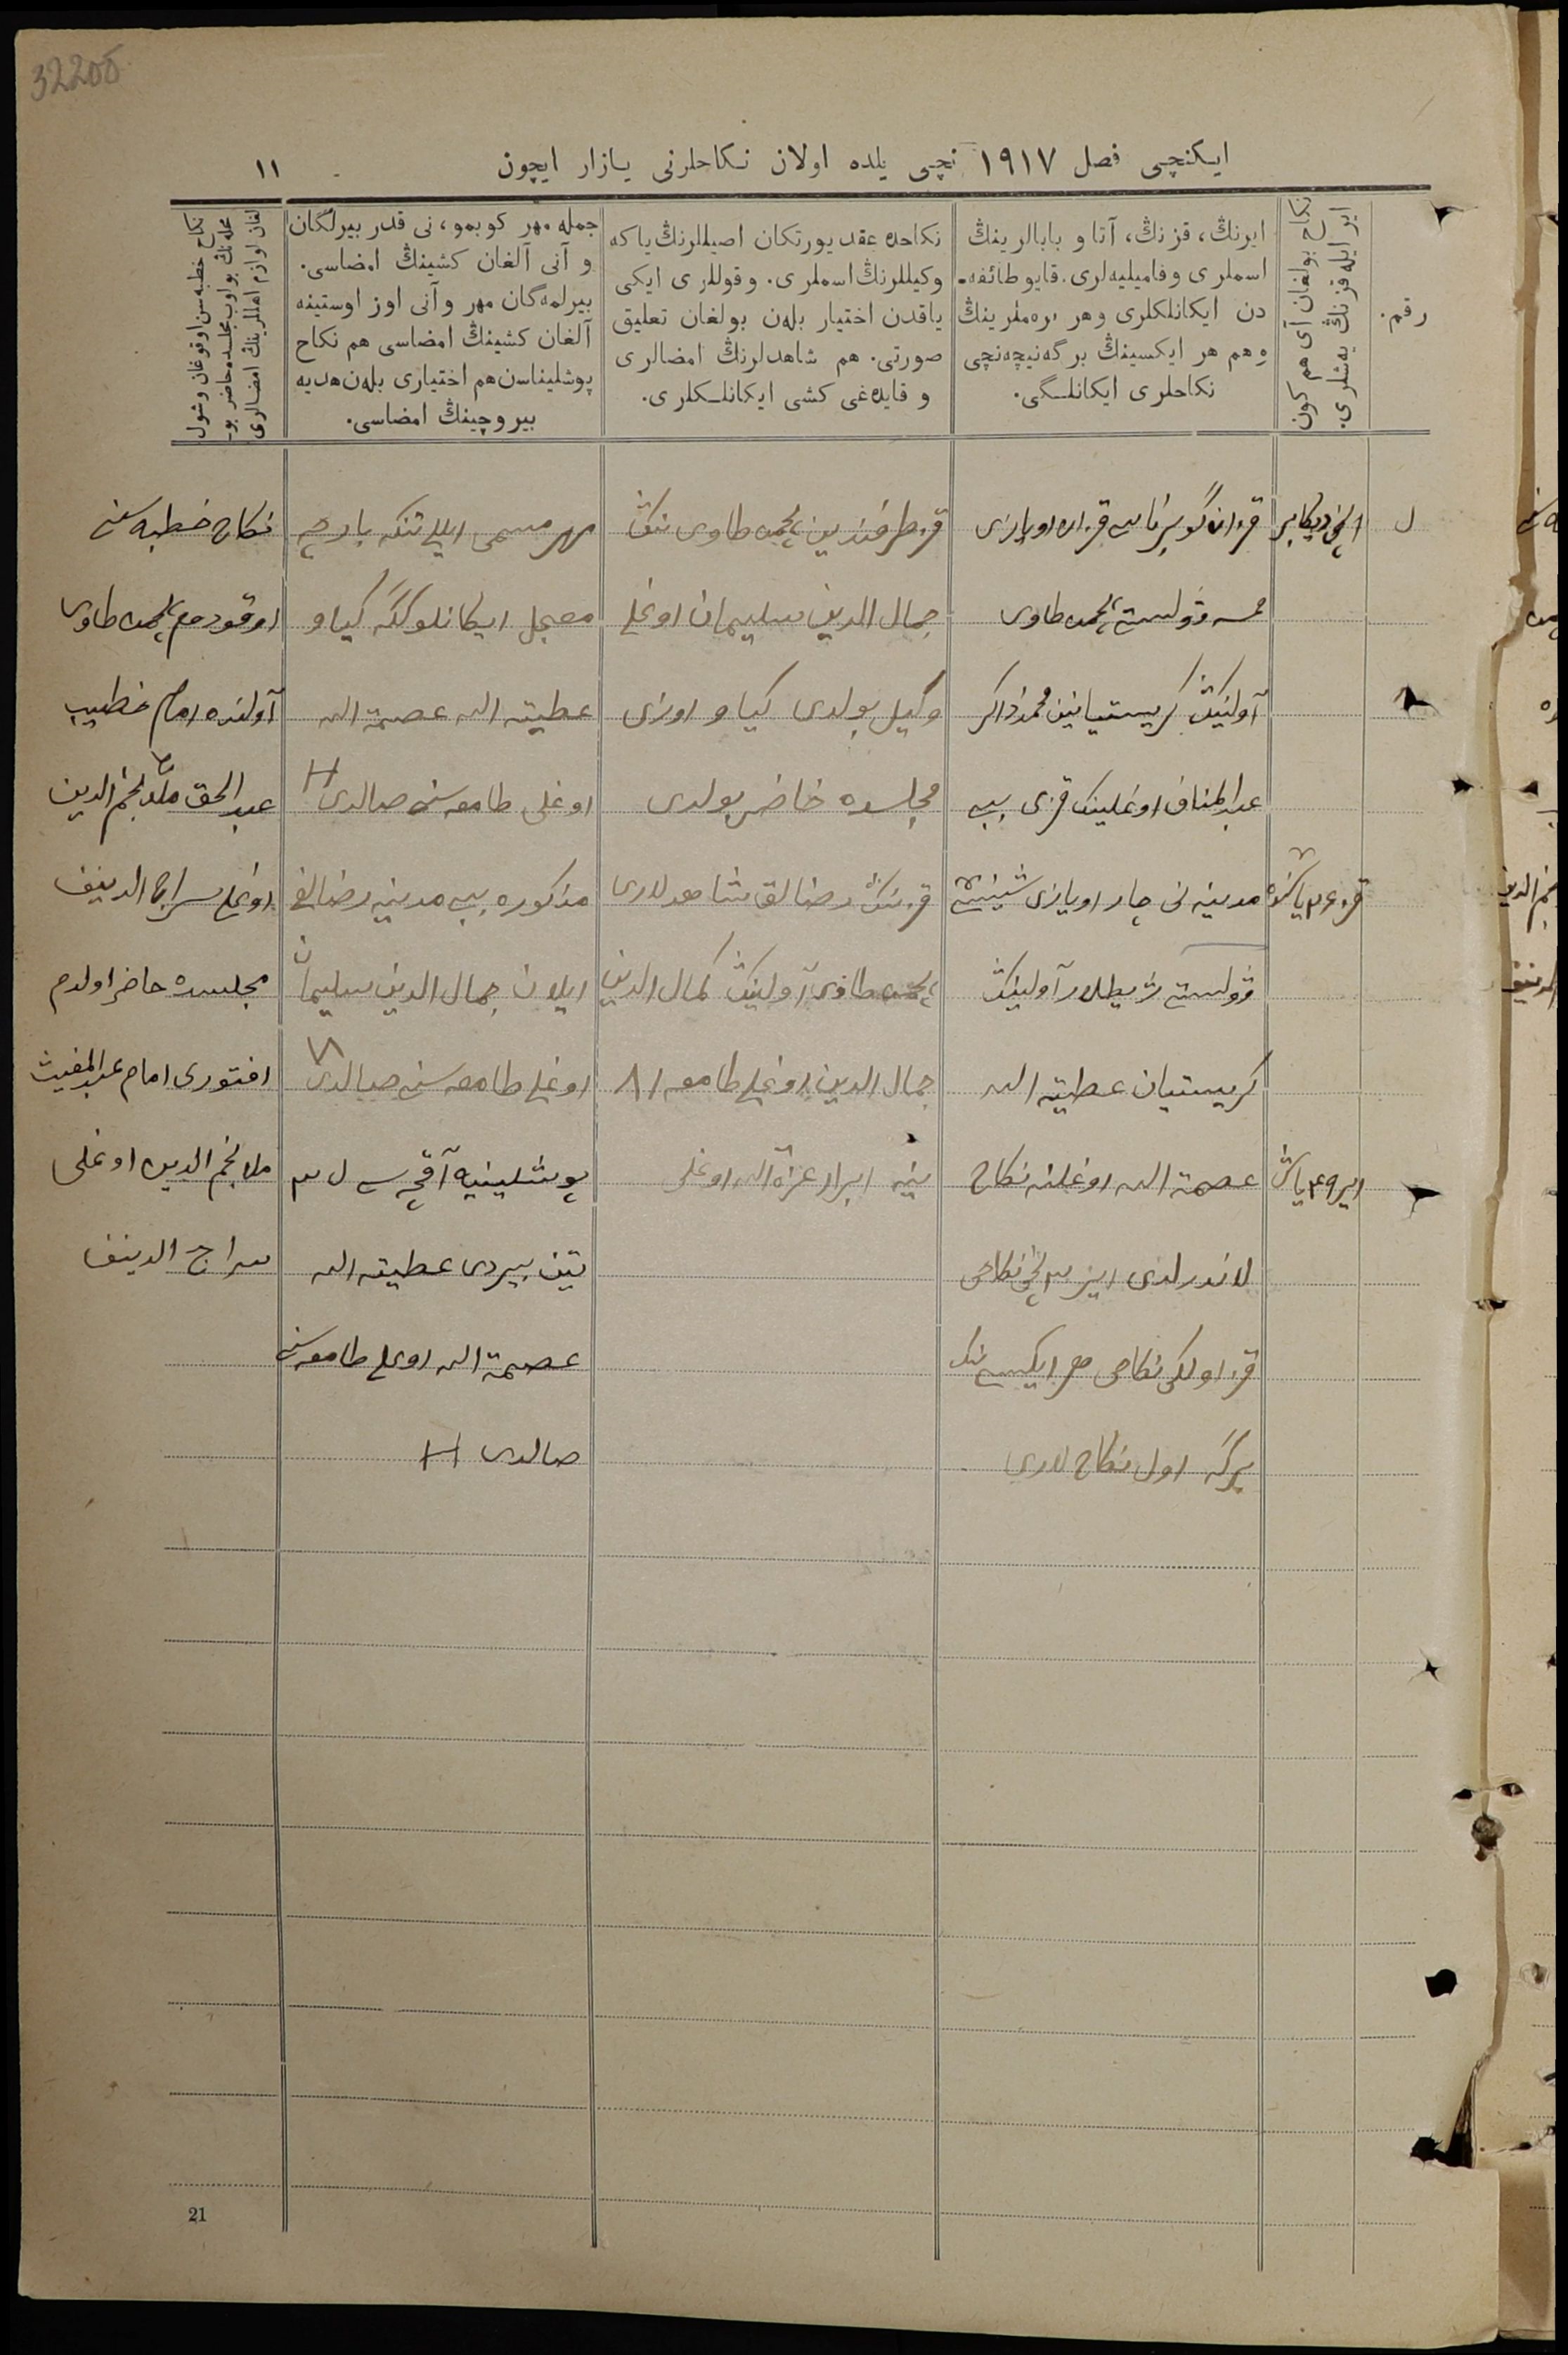 32205
ایکنچی فصل ۱۹۱۷ نچی یلده اولان نکاحلرنی یازار ایچون
۱۱
رقم.
نکاح بولغان آی هم کون
ایر ایله قزنڭ یەشلری.
ایرنڭ، قزنڭ، آتا و بابالرینڭ
اسملری و فامیلیەلری. قایو طائفە۔
دن ایکانلکلری وهر برەملرینڭ
وهم هر ایکسینڭ برگە نیچەنچی
نکاحلری ایکانلگی.
نکاحده عقد یورتکان اصیللرنڭ یا که
وکیللرنڭ اسملری. و قوللری ایکی
یاقدن اختیار بلەن بولغان تعلیق
صورتی. هم شاهدلرنڭ امضالری
و قایدەغی کشی ایکانلکلری.
جمله مهر کوبمو، نی قدر بیرلگان
و آنی آلغان کشینڭ امضاسی.
بیرلمەگان مهر و آنی اوز اوستینه
آلغان کشینڭ امضاسی هم نکاح
پوشلیناسن هم اختیاری بلەن هدیه
بیروچینڭ امضاسی.
نکاح خطبه سن اوقوغان وشول
محله نڭ بولوب مجلسده حاضر بو۔
لغان لوازم اهاللرینڭ امضالری
ل
۱ نچی دیکابر
قزان گوبیرناسی قزان اویازی
ڤولستی طاوی
آولینڭ کریستیانین محمدذاکر
عبدالمناف اوغلینڭ قزی بیبی
مدینه نی چار اویازی
ڤولستی آولینڭ
کریستیان عطیة الله
عصمة الله اوغلینه نکاح
لاندرلدی ایرنڭ ۳ نچی نکاحی
قز اولگی نکاحی هم ایکیسی نڭ
برگه اول نکاح لاری
قز ۲۶ یاشنده
ایر ۴۹ یاش
قز طرفندین طاوی ننڭ
جمال الدین سلیمان اوغلی
وکیل بولدی کیاو اوزی
مجلسده حاضر بولدی
قزننڭ رضالق شاهدلاری
طاوی آولینڭ کمال الدین
جمال الدین اوغلی طامغه ۸۱
ینه ابرار عزة الله اوغلی
مهر مسمی اللی تنکه بارچه
معجل ایکانلوککه کیاو
عطیة الله عصمة الله
اوغلی طامغه سنی صالدی H
مذکوره بیبی مدینه رضالغی
ایلان جمال الدین سلیمان
اوغلی طامغه سنی صالدی ۸۱
پوشلینیه آقچه سی ل ۳
تین بیردی عطیة الله
عصمة الله اوغلی طامغه سنی
صالدی H
نکاح خطبه سنی
اوقودم طاوی
آولنده امام خطیب
عبدالحق ملا نجم الدین
اوغلی سراج الدینف
مجلسده حاضر اولدم
امام عبدالمغیث
ملا نجم الدین اوغلی
سراج الدینف
21